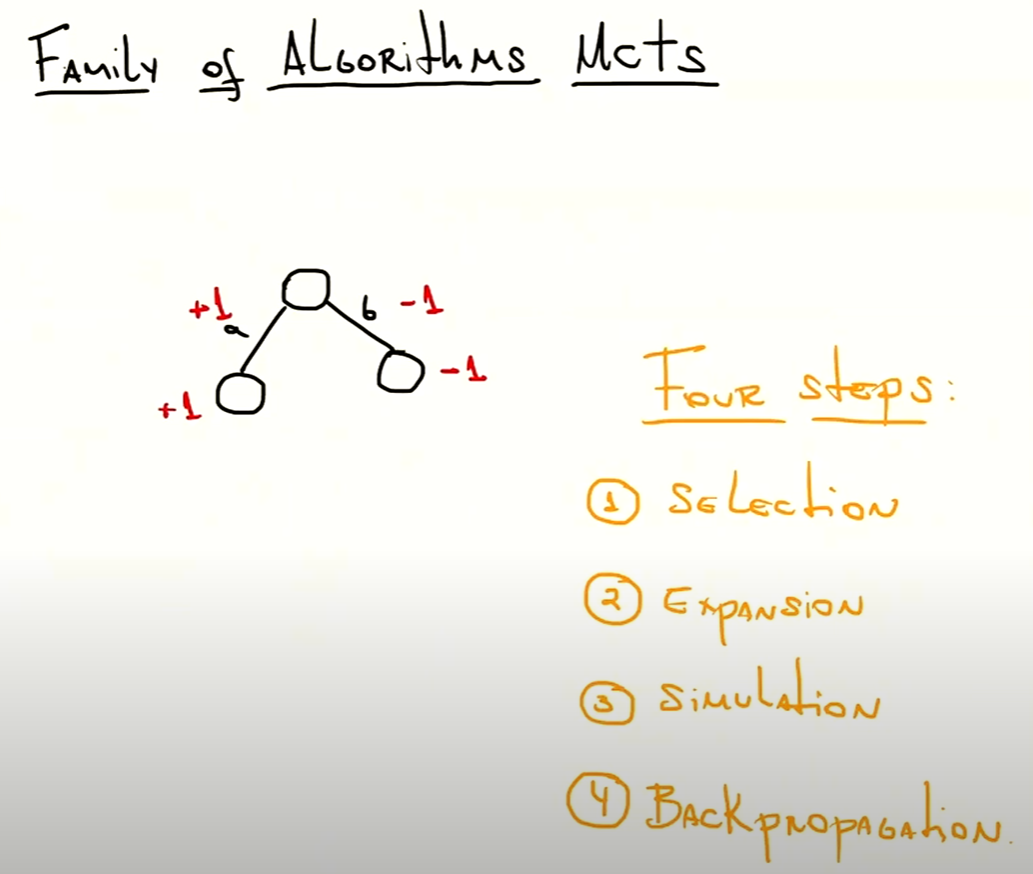 Family of Algorithms MCTS
+1 a b -1
+1 -1
Four steps:
1 Selection
2 Expansion
3 Simulation
4 Backpropagation.